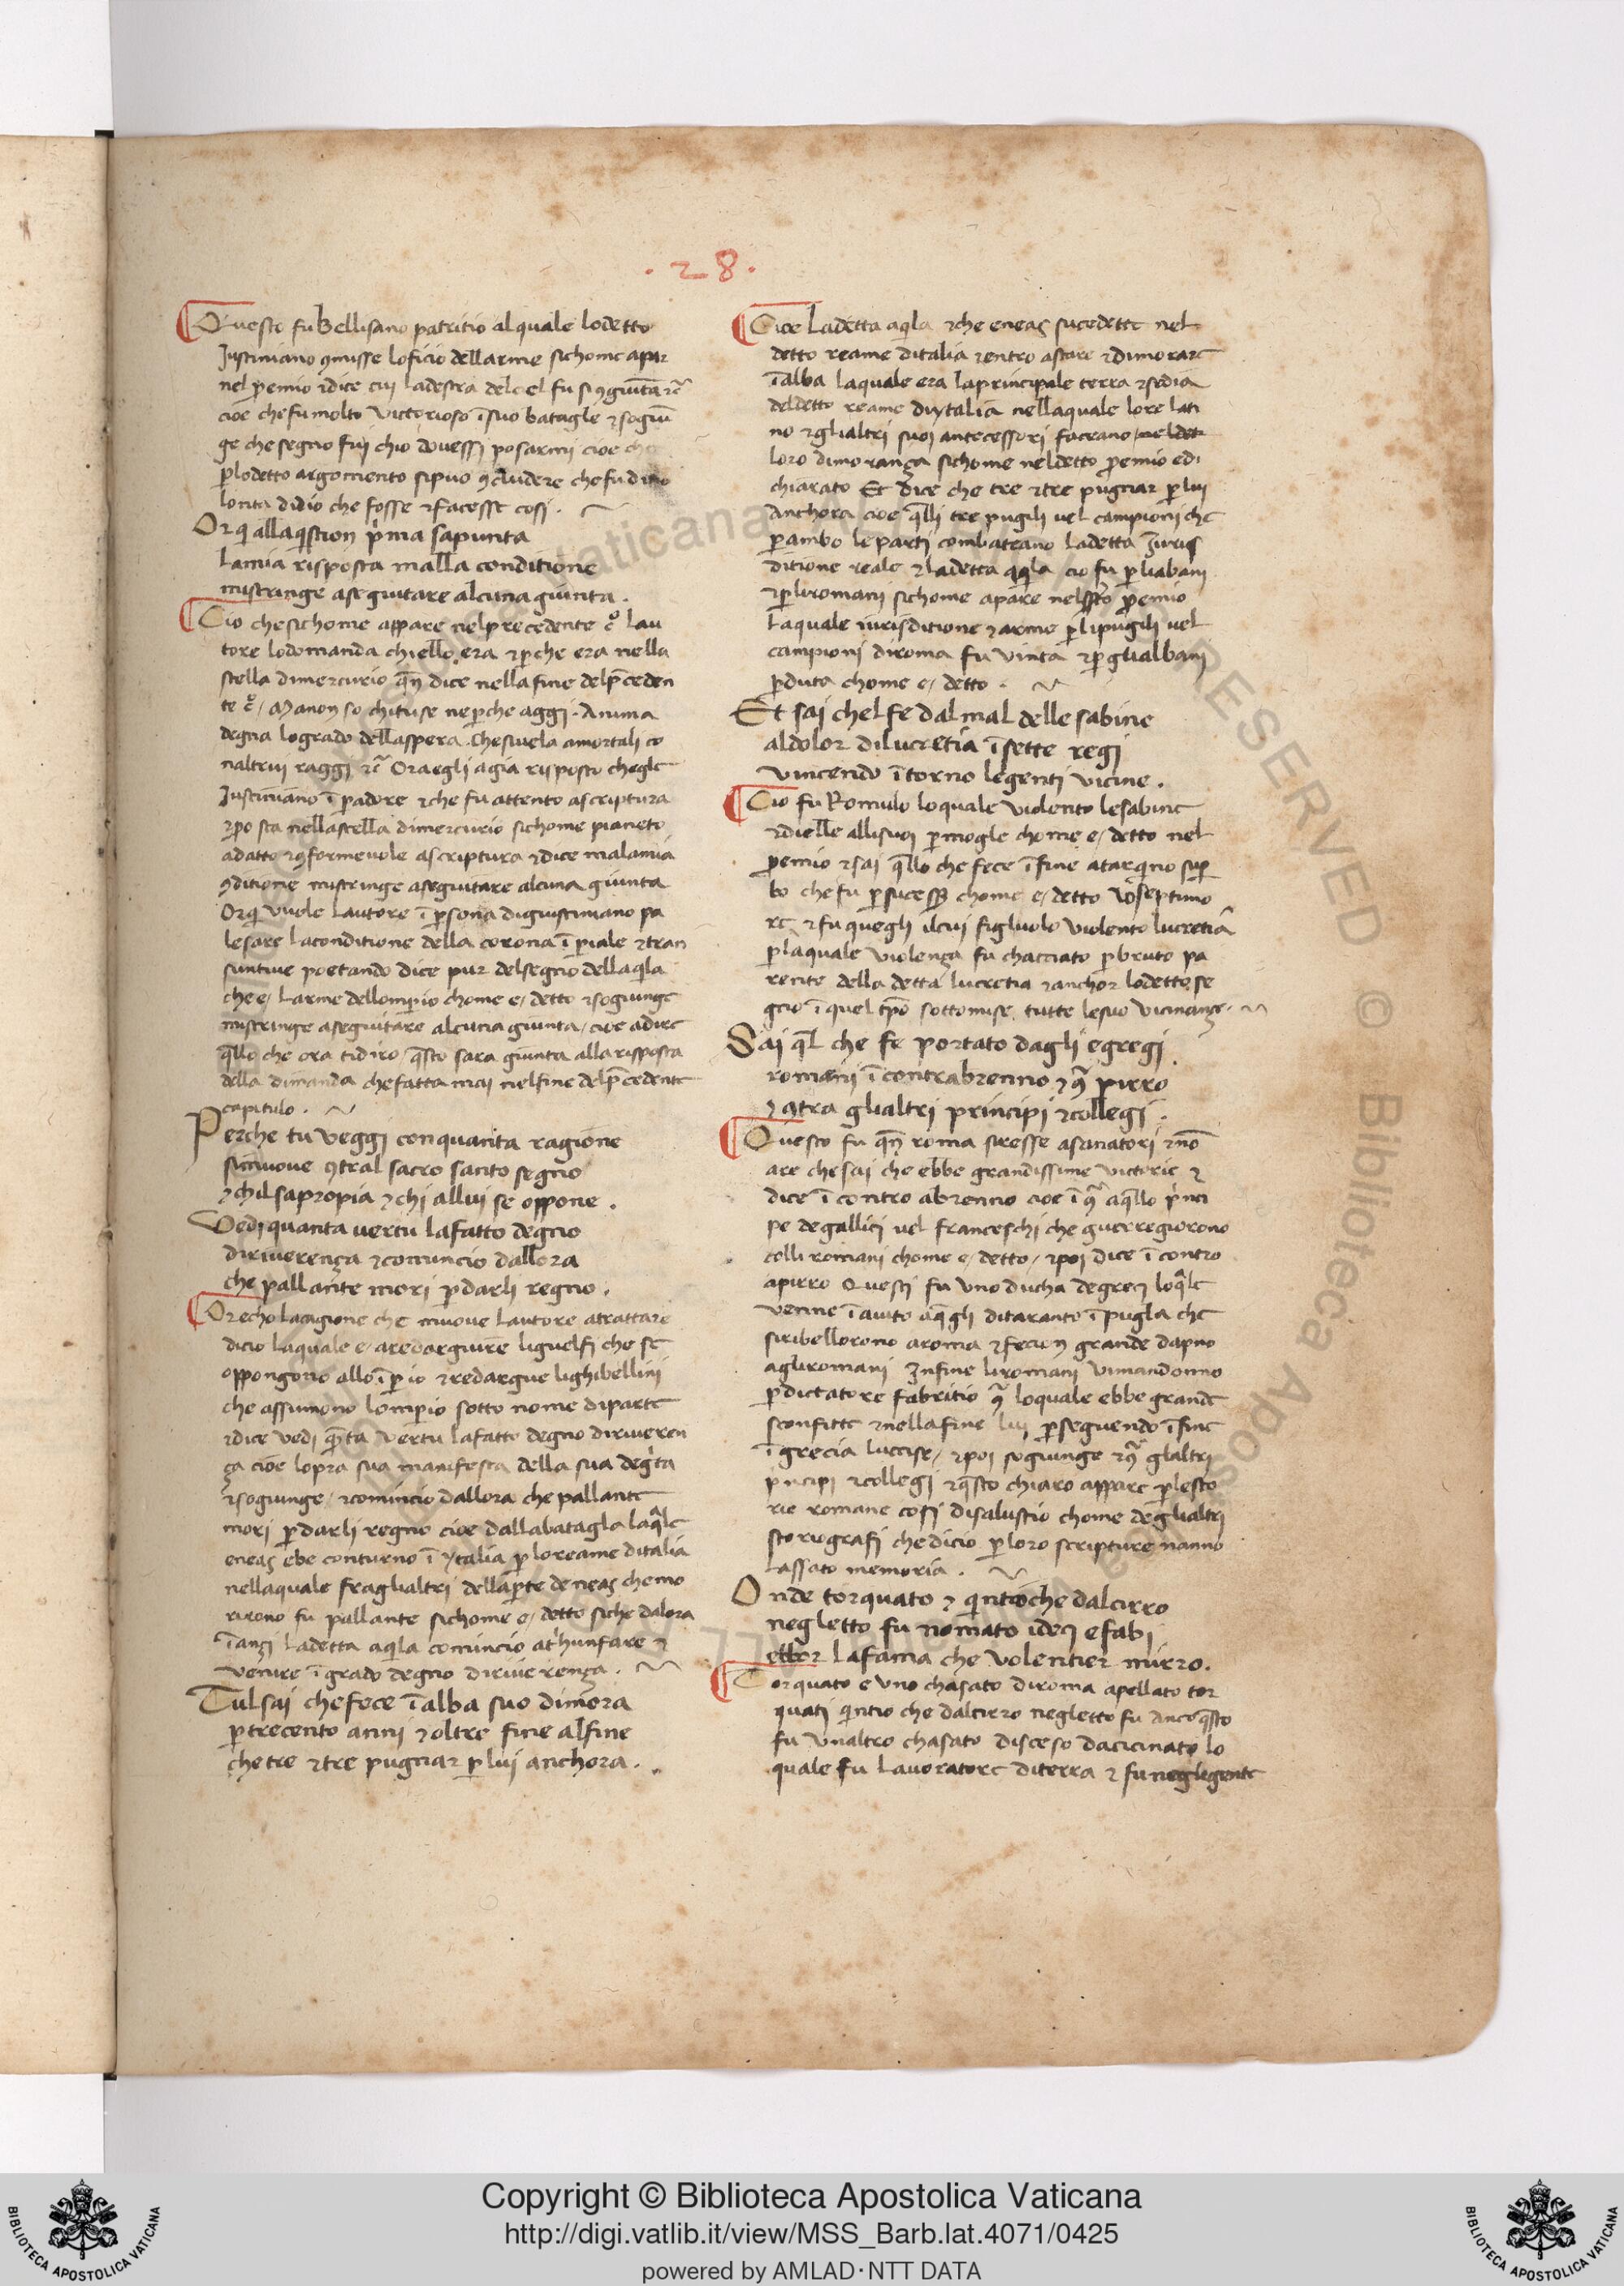 . 28 .
Questo fu Bellisano patritio al quale lo detto
Justiniano ꝯmisse loficio dellarme sichome apar
nel proemio ꝛ dice cui la destra del ciel fu si ꝯgiunta ꝛc̃
cioe che fu molto victorioso ĩ suo batagle ꝛ sogiũ
ge che segno fui chio dovessi posarmi cioe che
ꝑ lo detto argomento si puo ꝯcludere che fu di vo
lonta didio che fosse ꝛ facesse cosi .
Or qi alla qistion pͥma sapunta
la mia risposta ma lla conditione
mi stringe a seguitare alcuna giunta .
Cio che sichome appare nel precedente cͦ lau
tore lo domanda chi ello era ꝛ ꝑche era nella
stella di mercurio qñ dice nella fine del p̃ceden
te cͦ / Ma non so chi tu se ne ꝑche aggi . Anima
degna lo grado della spera . che si vela amortali co
naltrui raggi ꝛc̃ Ora egli agia risposto chegle
Justiniano ĩꝑadore ꝛ che fu attento a scriptura
ꝛ po sta nella stella di mercurio sichome pianeto
adatto ꝛ ꝯformevole a scriptura ꝛ dice ma la mia
ꝯditione mi stringe a seguitare alcuna giunta
Or qi vuole lautore ĩ ꝑsona di giustiniano pa
lesare la conditione della corona ĩꝑiale ꝛ tran
suntive poetando dice pur del segno dell aqila
che e / larme dellomperio chome e / detto ꝛ sogiunge
mi stringe a seguitare alcuna giunta / cioe a dire
q̃llo che ora ti diro / q̃sto sara giunta alla risposta
della dimanda che fatta mai nel fine del p̃cedente
capitulo .
Perche tu veggi con quanta ragione
si muove ꝯtral sacro santo segno
ꝛ chil sapropia ꝛ chi allui se oppone .
Vedi quanta vertu lafatto degno
di riverença ꝛ comincio dallora
che pallante mori ꝑ darli regno .
Or echo la cagione che muove lautore a trattare
dicio la quale e / a redarguire li guelfi che se
oppongono allo ĩꝑio ꝛ redargue li ghibellini
che assumono lomperio sotto nome di parte
ꝛ dice vedi qᷓta vertu lafatto degno di riveren
ça cioe lopra sua manifesta della sua degͥta
ꝛ sogiunge / ꝛ comincio dallora che pallante
mori ꝑ darli regno cioe dalla batagla la q̃le
eneas ebe con turno ĩ ytalia ꝑ lo reame ditalia
nella quale fra glialtri della ꝑte de neas che mo
rirono fu pallante sichome e / detto siche dalora
ĩ ançi la detta aqila comincio a trihunfare ꝛ
venire ĩ grado degno di riverença .
Tul sai che fece ĩ alba suo dimora
ꝑ trecento anni ꝛ oltre fine al fine
che tre ꝛ tre pugnar ꝑ lui anchora .
Dice la detta aqila ꝛ che eneas sucedette nel
detto reame ditalia ꝛ entro a stare ꝛ dimorare
ĩ alba la quale era la principale terra ꝛ sedia
del detto reame di ytalia nella quale lo re lati
no ꝛ glialtri suoi antecessori faceano nel det
loro dimorança sichome nel detto proemio e di
chiarato Et dice che tre ꝛ tre pugnar ꝑ lui
Anchora cioe q̃lli tre pugili vel campioni che
ꝑ ambo le parti combateano la detta Juris
ditione reale ꝛ la detta aqila cio fu ꝑ li abani
ꝛ ꝑ li romani sichome apare nel detto proemio
la quale iurisditione ꝛ arme ꝑ li pugili vel
campioni di roma fu vinta ꝛ ꝑ gli albani
ꝑduta chome e / detto .
Et sai chel fe dal mal delle sabine
al dolor di lucretia ĩ sette regi
vincendo ĩ torno le genti vicine .
Cio fu Romulo lo quale violento le sabine
ꝛ dielle alli suoi ꝑ mogle chome e / detto nel
proemio ꝛ sai q̃llo che fece ĩ fine a tarqino suꝑ
bo che fu ꝑ sucess chome e / detto lo septimo
re ꝛ fu quegli il cui figluolo violento lucretia
ꝑ la quale violença fu chacciato ꝑ bruto pa
rente della detta lucretia ꝛ anchor lo detto se
gno ĩ quel tp̃o sottomise tutte le suo vicinançe .
Sai q̃l che fe portato dagli egregi
romani ĩ contra brenno ꝛ ꝯᷓ pirro
ꝛ ꝯtra glialtri principi ꝛ collegi .
Questo fu qñ roma si resse a sanatori ꝛ nõ
a re che sai che ebbe grandissime victorie ꝛ
dice ĩ contro a brenno cioe ĩ ꝯᷓ a q̃llo pͥnci
pe de gallici vel franceschi che guerregiorono
colli romani chome e / detto / ꝛ poi dice ĩ contro
a pirro Questi fu uno ducha de greci lo q̃le
venne ĩ aiuto a q̃gli di taranto ĩ pugla che
si ribellorono a roma ꝛ fecion grande dapno
agli romani Jnfine li romani vi mandonno
ꝑ dictatore fabritio ꝯᷓ lo quale ebbe grande
sconfitte ꝛ nella fine lui ꝑseguendo ĩ fine
ĩ grecia luccise / ꝛ poi sogiunge ꝛ ꝯᷓ glaltri
pͥncipi ꝛ collegi ꝛ q̃sto chiaro appare ꝑ le sto
rie romane cosi di salustio chome deglialtri
storiografi che dicio ꝑ loro scripture nanno
lassato memoria .
Onde torquato ꝛ qintio che dal cirro
negletto fu nomato i deci e fabi
ebbor la fama che volentier mirro .
Torquato e uno chasato di roma apellato tor
quati qintio che dal cirro negletto fu anco q̃sto
fu unaltro chasato disceso da cicinato lo
quale fu lavoratore di terra ꝛ fu neglegente
Copyright © Biblioteca Apostolica Vaticana
http://digi.vatlib.it/view/MSS_Barb.lat.4071/0425
powered by AMLAD·NTT DATA
BIBLIOTECA APOSTOLICA VATICANA
BIBLIOTECA APOSTOLICA VATICANA